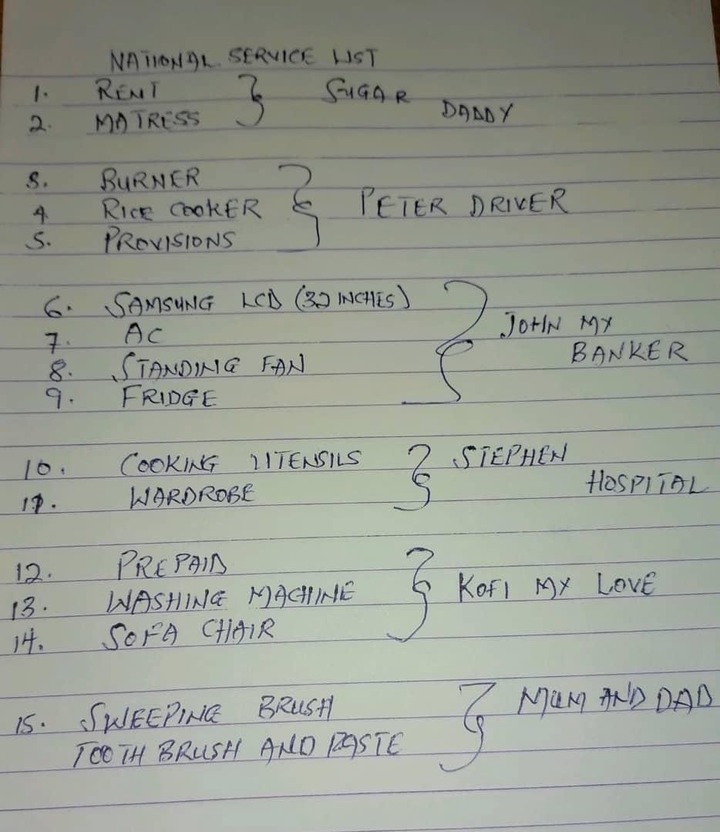 NATIONAL SERVICE LIST
1. RENT
2. MATRESS
SUGAR DADDY
3. BURNER
4. RICE COOKER
5. PROVISIONS
PETER DRIVER
6. SAMSUNG LCD (32 INCHES)
7. AC
8. STANDING FAN
9. FRIDGE
JOHN MY
BANKER
10. COOKING UTENSILS
11. WARDROBE
STEPHEN
HOSPITAL
12. PREPAID
13. WASHING MACHINE
14. SOFA CHAIR
KOFI MY LOVE
15. SWEEPING BRUSH
TOOTH BRUSH AND PASTE
MUM AND DAD